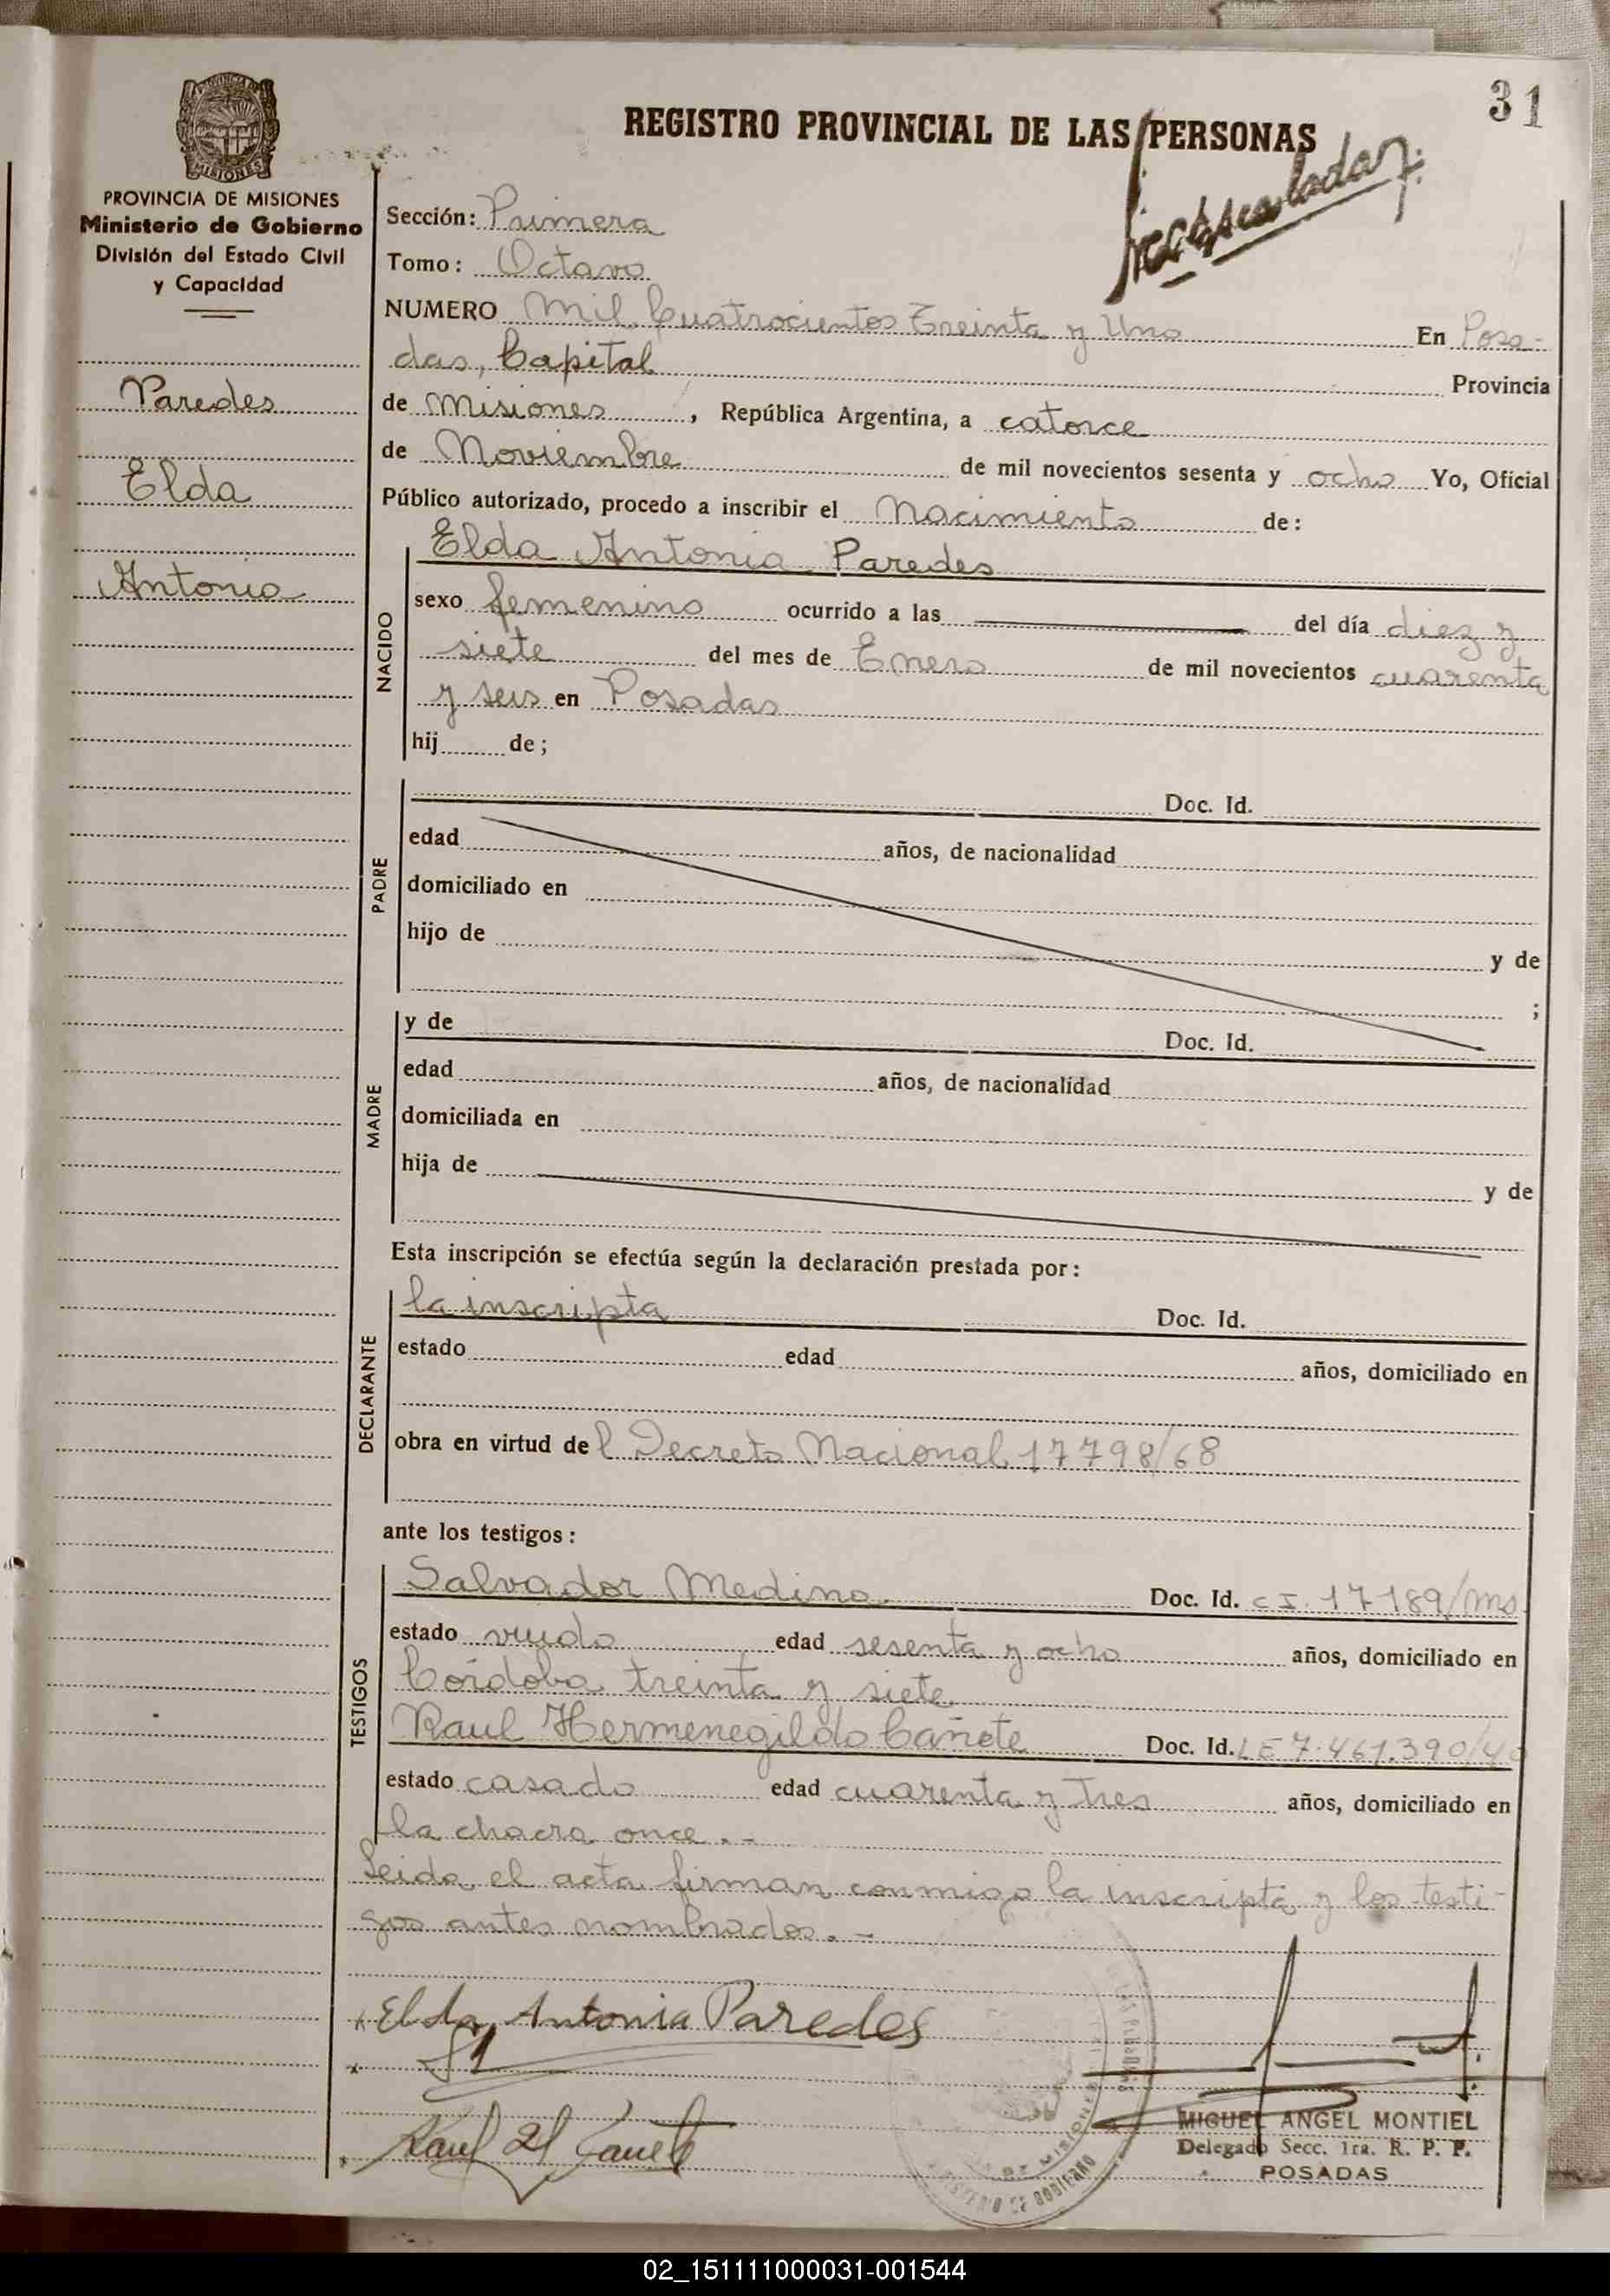 31
REGISTRO PROVINCIAL DE LAS PERSONAS
MISIONES
PROVINCIA DE MISIONES
Ministerio de Gobierno
División del Estado Civil
y Capacidad
Paredes
Elda
Antonia
Sección: Primera
Tomo: Octavo
NUMERO Mil Cuatrocientos Treinta y Uno En Posa-
das, Capital Provincia
de Misiones, República Argentina, a catorce
de Noviembre de mil novecientos sesenta y ocho Yo, Oficial
Público autorizado, procedo a inscribir el Nacimiento de:
NACIDO
Elda Antonia Paredes
sexo femenino ocurrido a las del día diez y
siete del mes de Enero de mil novecientos cuarenta
y seis en Posadas
hij de;
PADRE
Doc. Id.
edad años, de nacionalidad
domiciliado en
hijo de y de
;
MADRE
y de Doc. Id.
edad años, de nacionalidad
domiciliada en
hija de y de
Esta inscripción se efectúa según la declaración prestada por:
DECLARANTE
la inscripta Doc. Id.
estado edad años, domiciliado en
obra en virtud del Decreto Nacional 17798/68
ante los testigos:
TESTIGOS
Salvador Medina Doc. Id. C I. 17189/Ms
estado viudo edad sesenta y ocho años, domiciliado en
Córdoba treinta y siete
Raul Hermenegildo Cañete Doc. Id. LE 7.461.390/
estado casado edad cuarenta y tres años, domiciliado en
la chacra once.-
Leida el acta firman conmigo la inscripta y los testi-
gos antes nombrados.-
Elda Antonia Paredes
Raul H Cañete
MIGUEL ANGEL MONTIEL
Delegado Secc. 1ra. R. P. P.
POSADAS
02_151111000031-001544